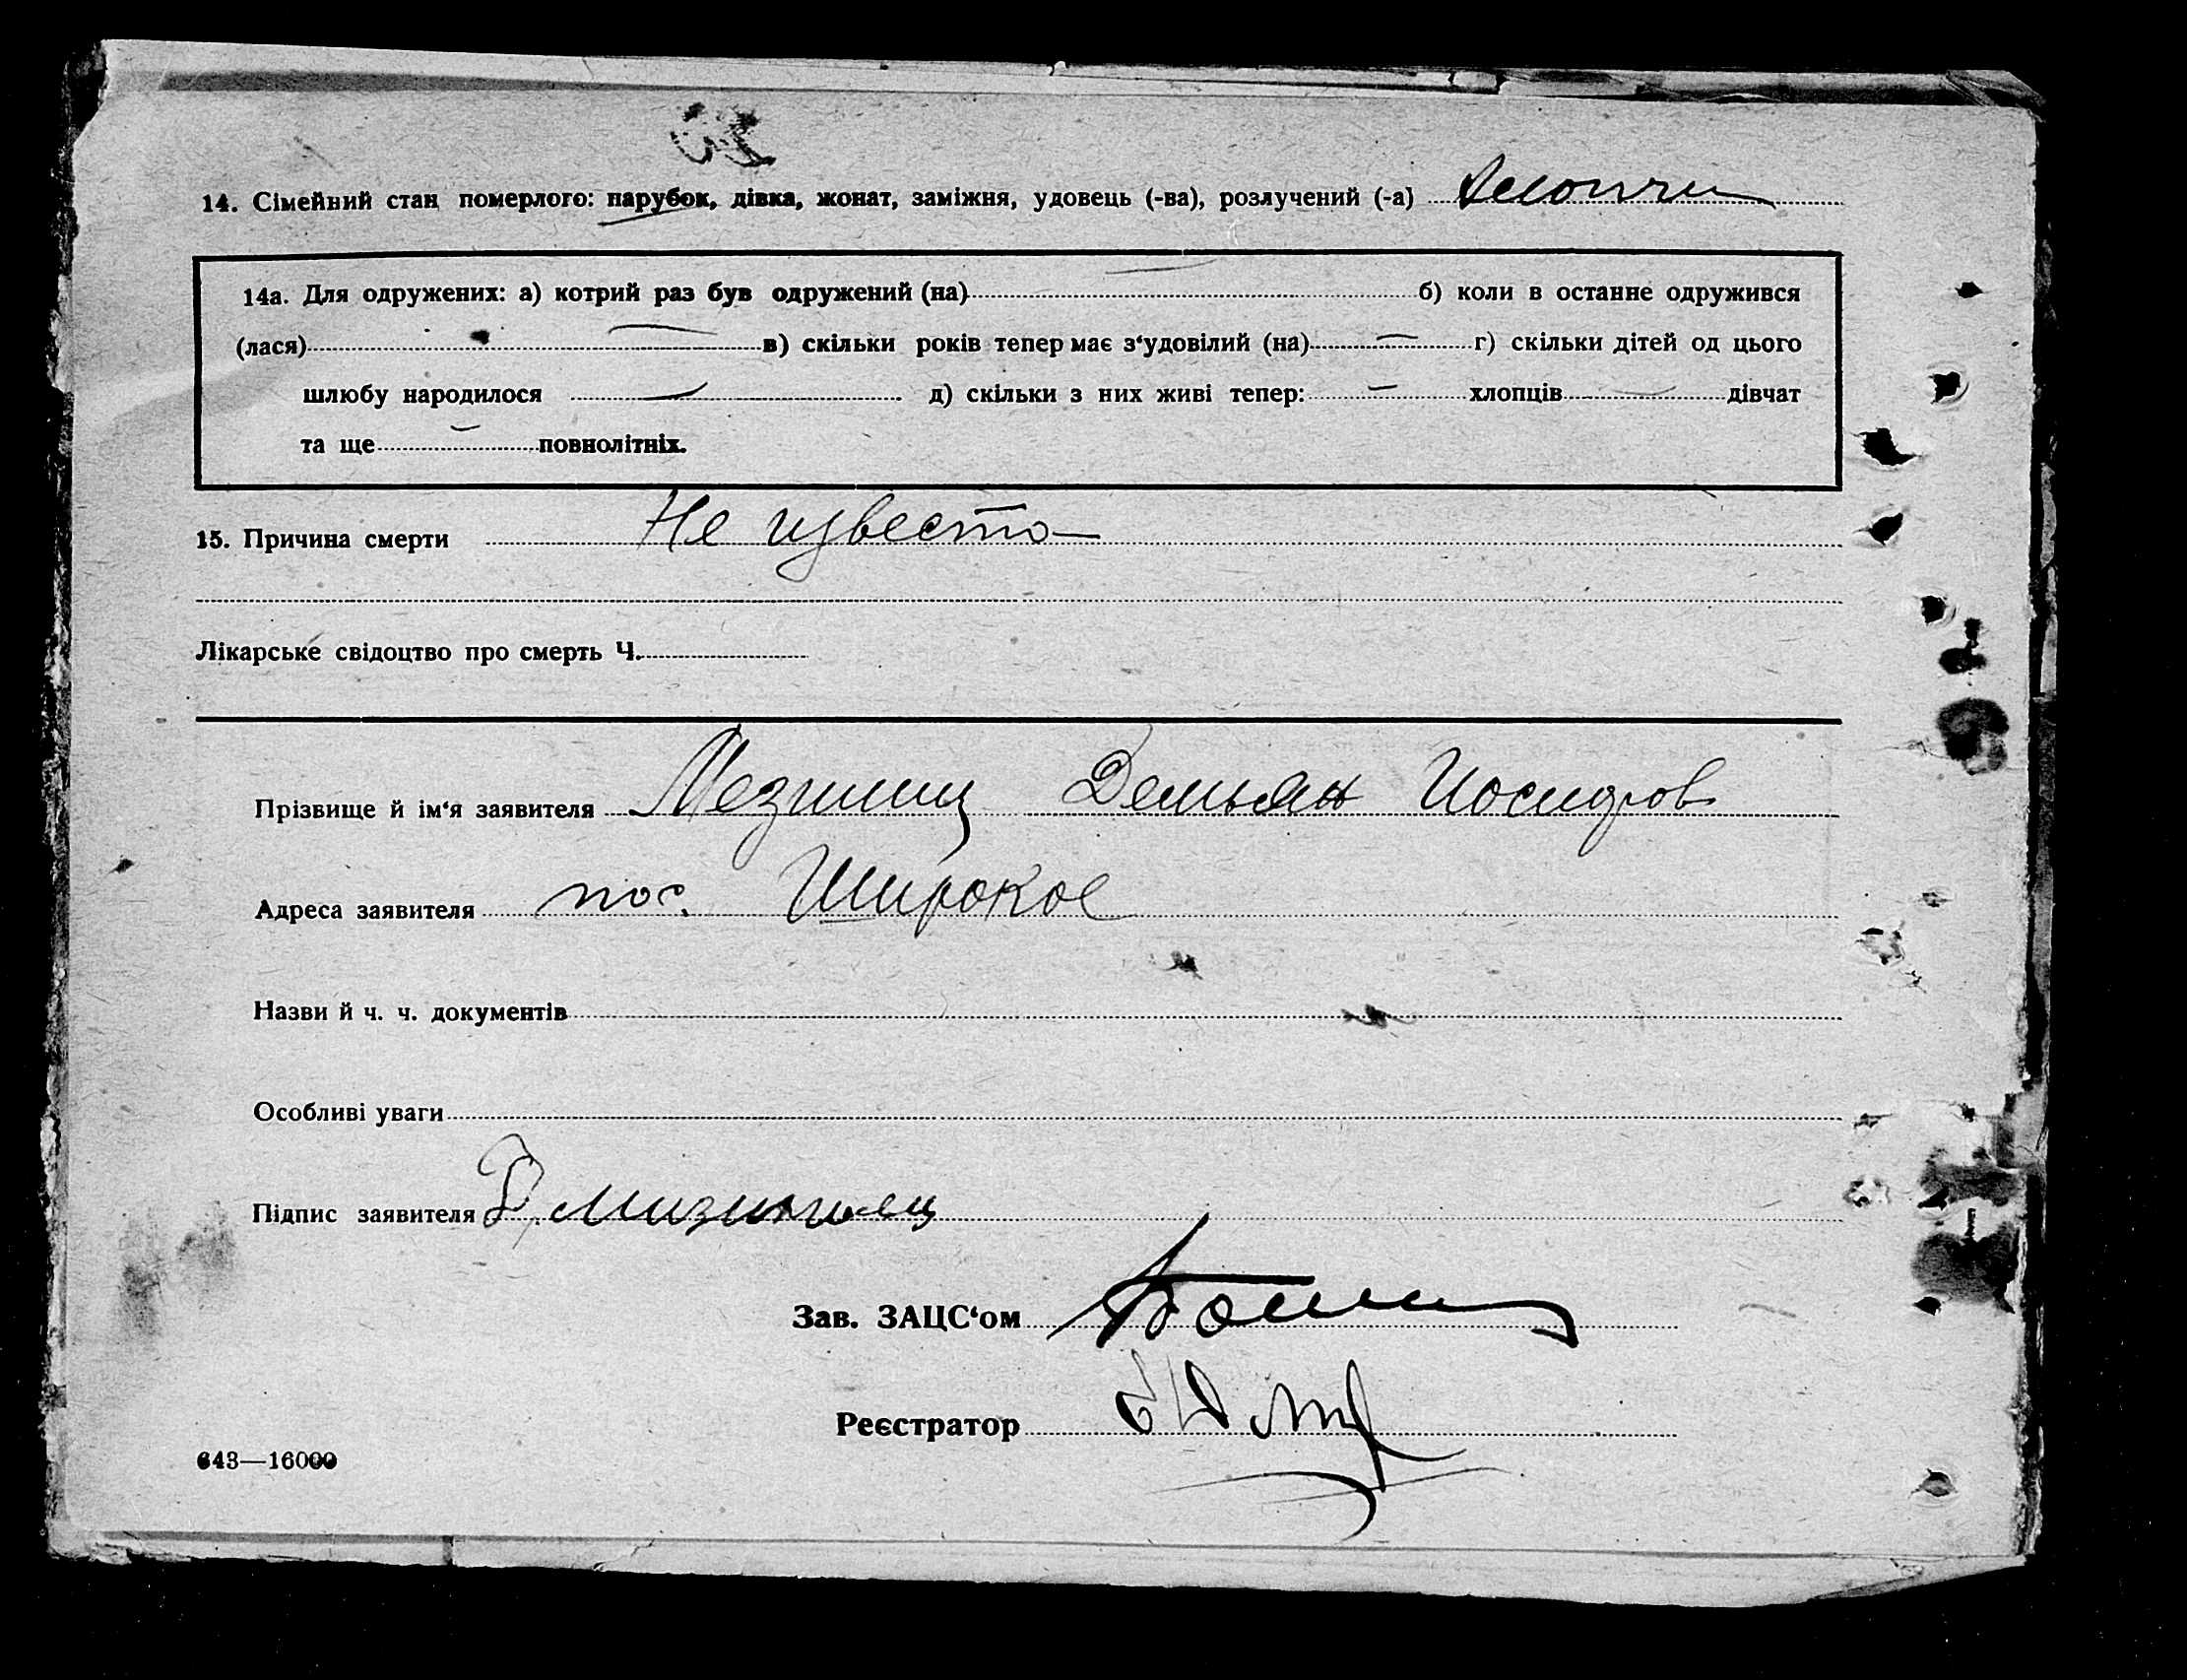 14. Сімейний стан померлого: парубок, дівка, жонат, заміжня, удовець (-ва), розлучений (-а)
14а. Для одружених: а) котрий раз був одружений (на) б) коли в останне одружився
(лася) в) скільки років тепер має з‘удовілий (на) г) скільки дітей од цього
шлюбу народилося д) скільки з них живі тепер: хлопців дівчат
та ще повнолітніх.
15. Причина смерти Не известо
Лікарське свідоцтво про смерть Ч.
Прізвище й ім‘я заявителя Демьян
Адреса заявителя пос. Широкое
Назви й ч. ч. документів
Особливі уваги
Підпис заявителя
Зав. ЗАЦС‘ом
Реєстратор
643—16000